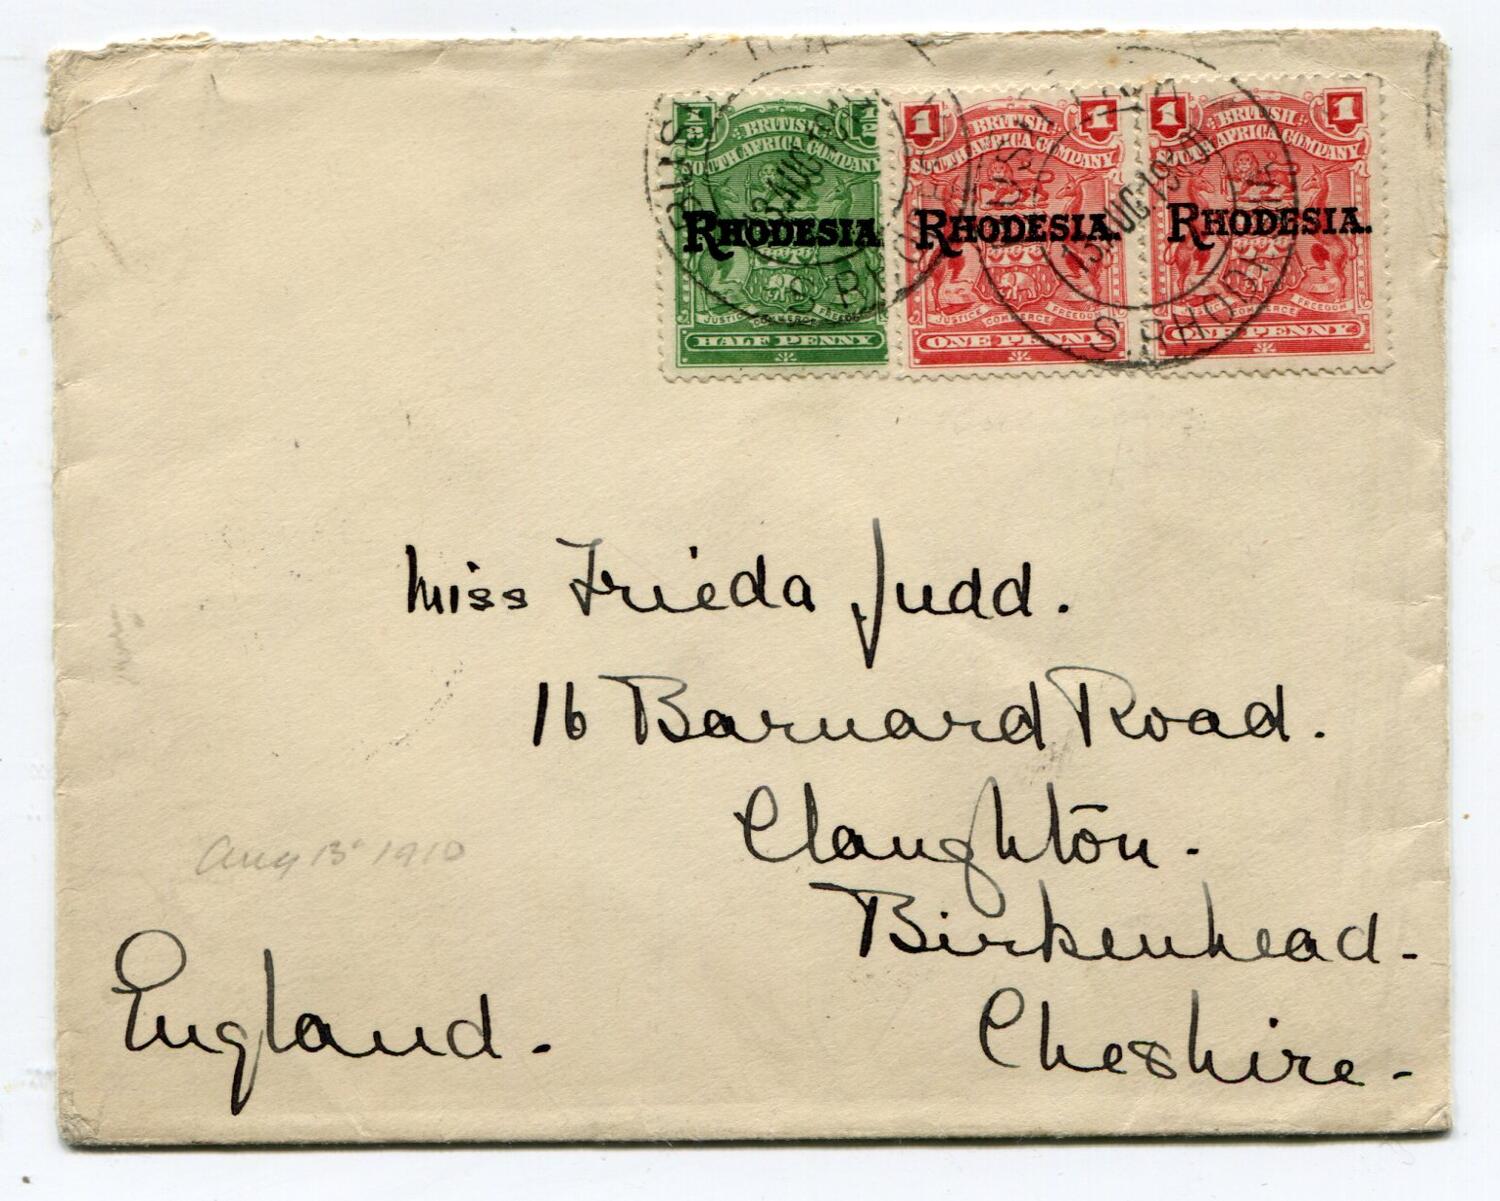 1/2 1/2
BRITISH
SOUTH AFRICA COMPANY
RHODESIA
JUSTICE COMMERCE FREEDOM
HALF PENNY
1 1
BRITISH
SOUTH AFRICA COMPANY
RHODESIA.
JUSTICE COMMERCE FREEDOM
ONE PENNY
1 1
BRITISH
SOUTH AFRICA COMPANY
RHODESIA.
JUSTICE COMMERCE FREEDOM
ONE PENNY
13 AUG 1910
S. RHODESIA
Miss Frieda Judd.
16 Barnard Road.
Claughton.
Birkenhead.
Cheshire.
England.
Aug 13 1910